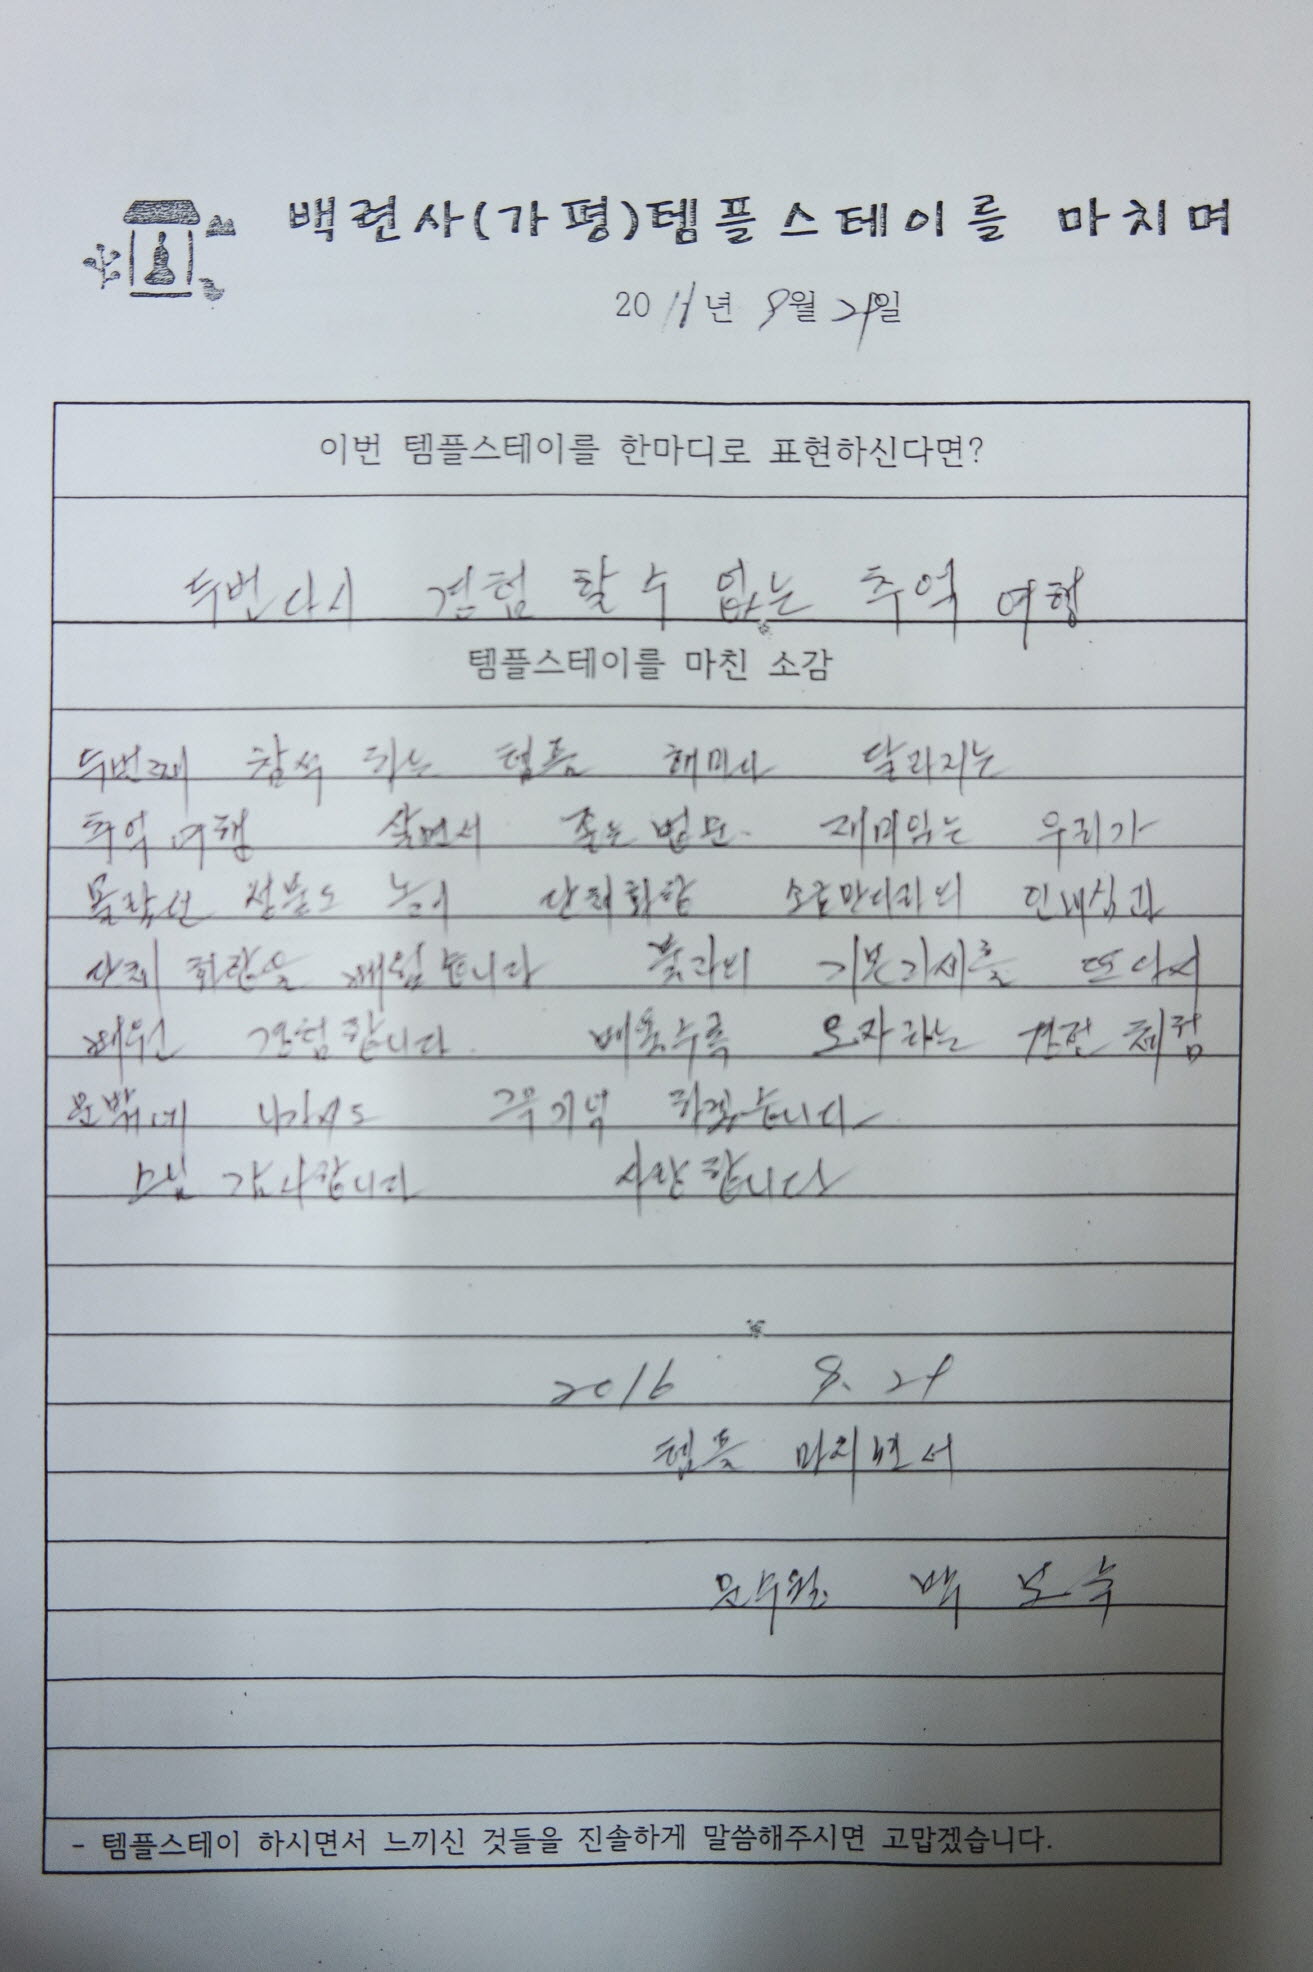 백련사(가평)템플스테이를 마치며
20 년 8월 21일
이번 템플스테이를 한마디로 표현하신다면?
두번다시 경험 할 수 없는 추억 여행
템플스테이를 마친 소감
두번째 참석 하는 템플 해마다 달라지는
추억 여행 살면서 좋은 법문 재미있는 우리가
놀이 단체화합 소금만다라의 인내심과
단체 화합을 배웠습니다 불교의 기본자세를 또다시
배운 경험합니다 배울수록 모자라는
문밖에 나가서도 기억 하겠습니다
스님 감사합니다 사랑합니다
2016 8. 21
템플 마치면서
문수월 백
- 템플스테이 하시면서 느끼신 것들을 진솔하게 말씀해주시면 고맙겠습니다.